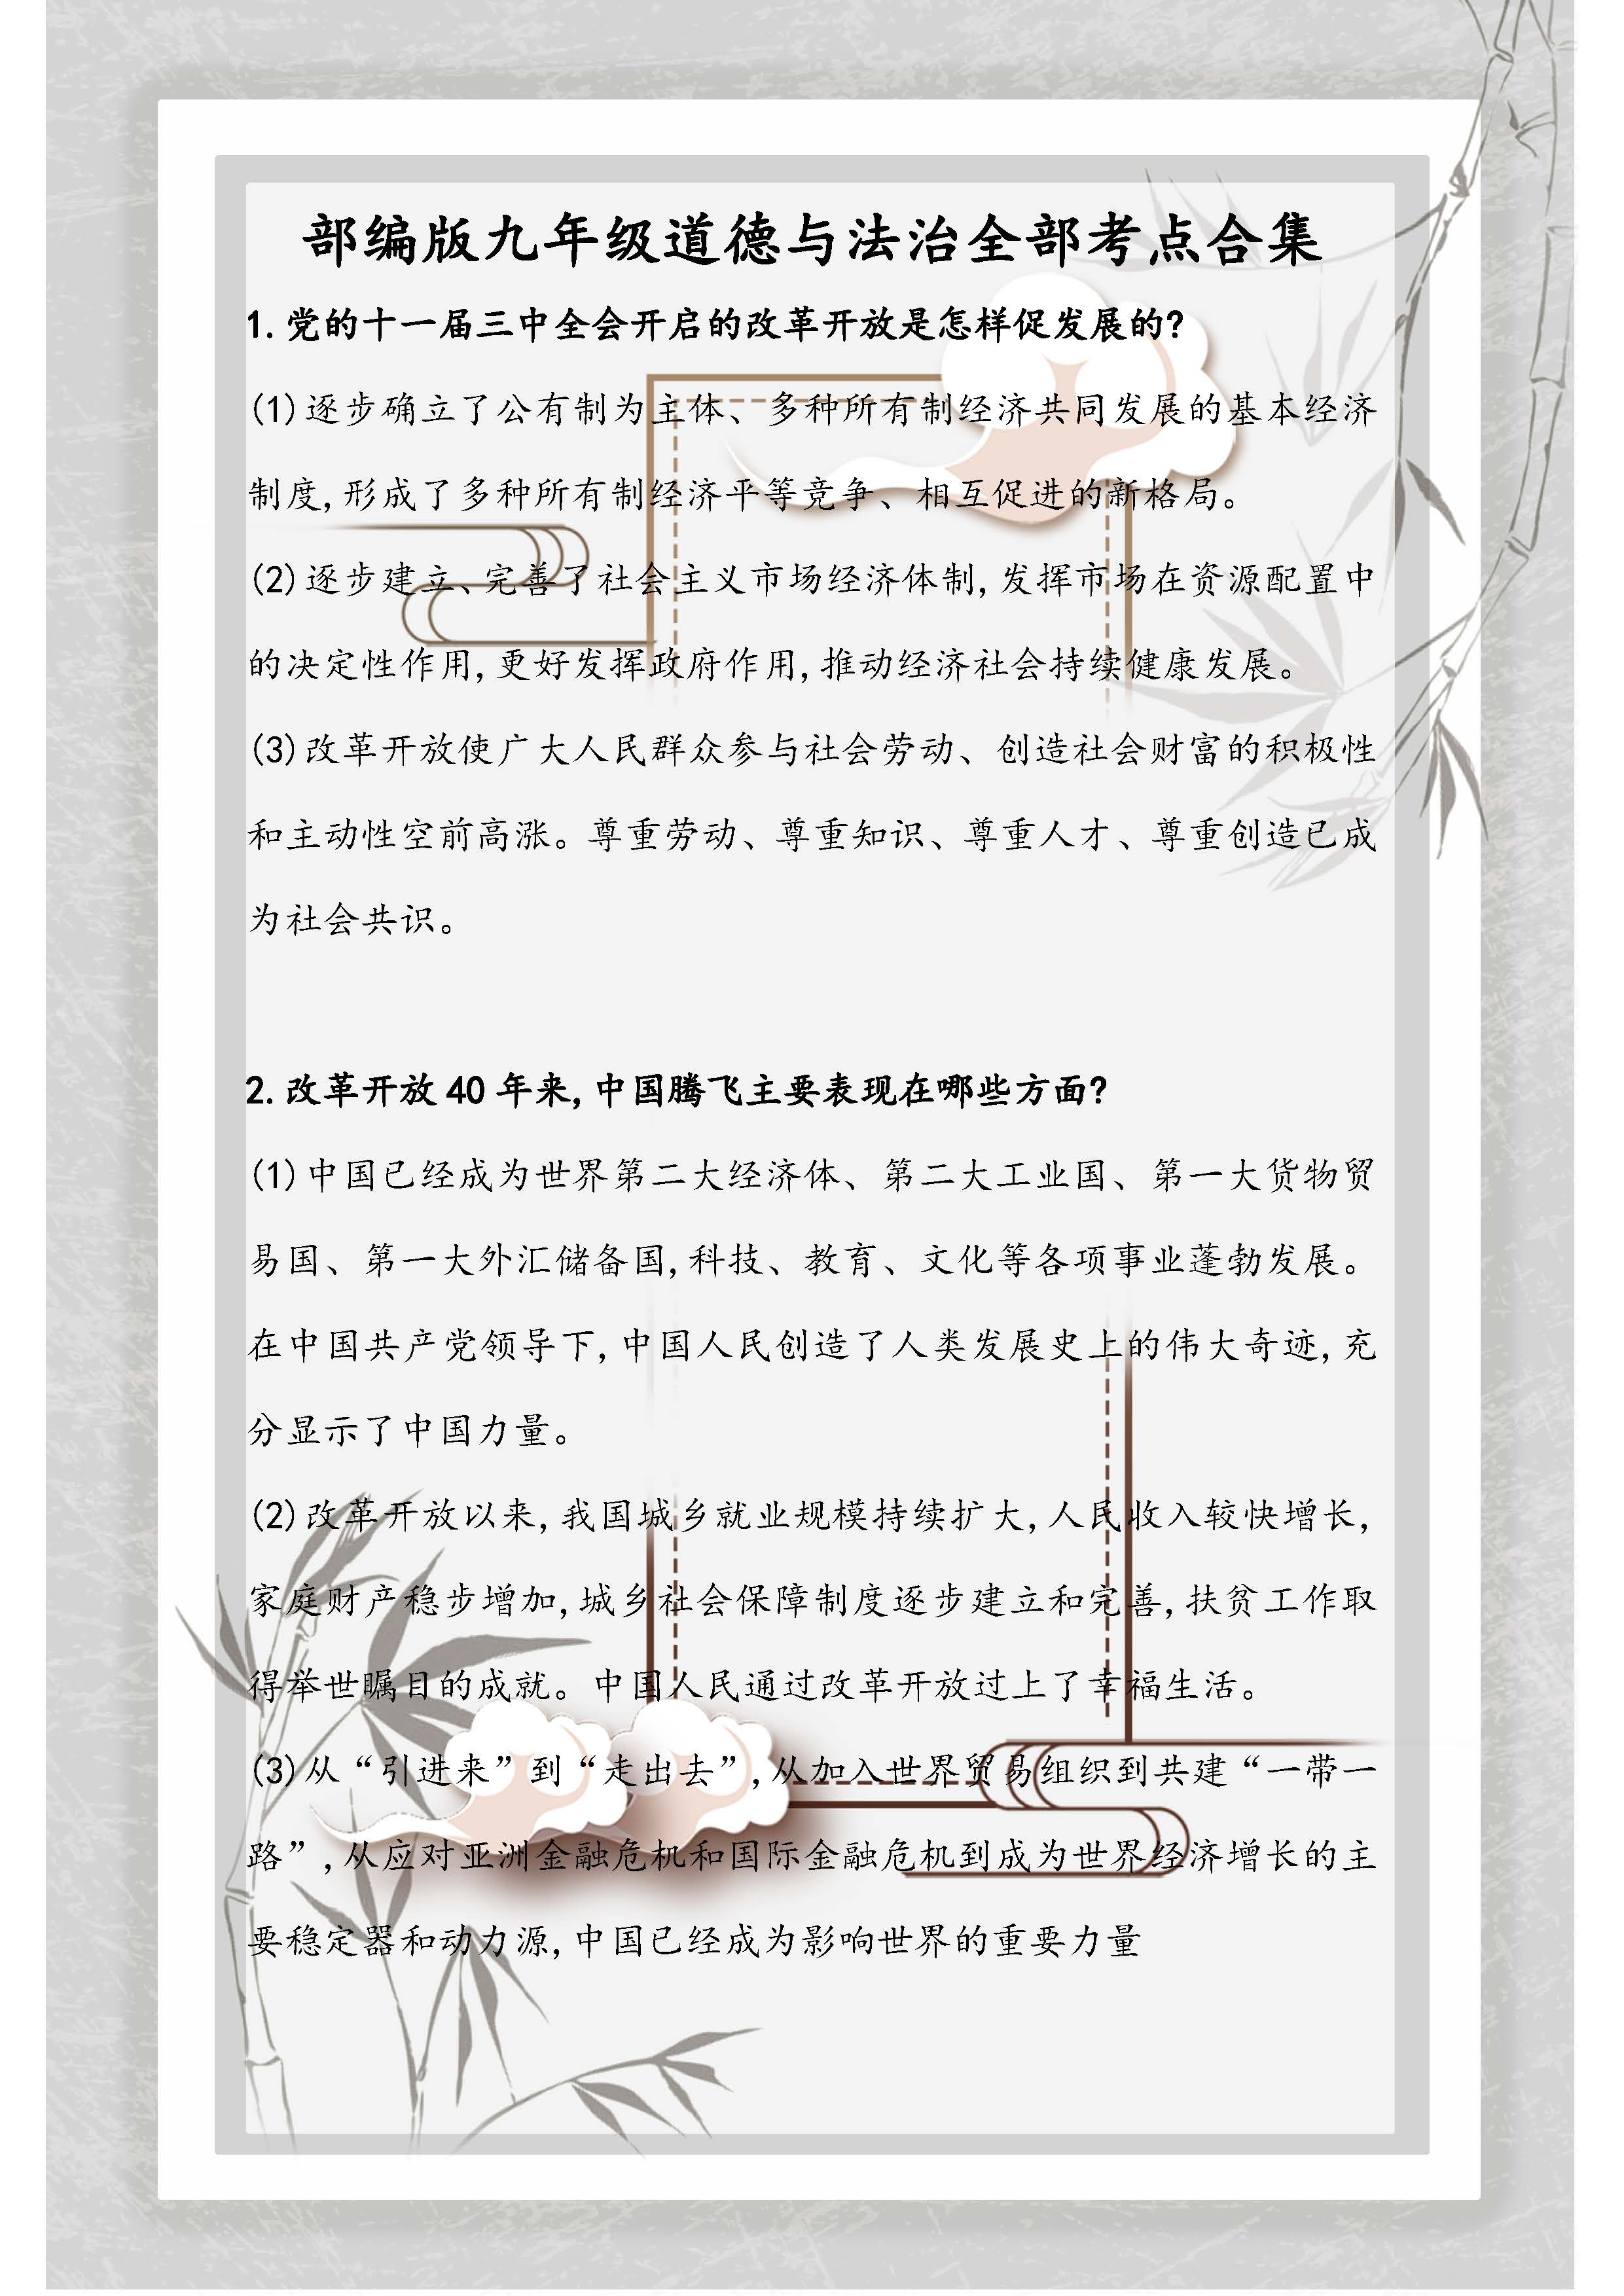 部编版九年级道德与法治全部考点合集
1.党的十一届三中全会开启的改革开放是怎样促发展的?
(1)逐步确立了公有制为主体、多种所有制经济共同发展的基本经济
制度,形成了多种所有制经济平等竞争、相互促进的新格局。
(2)逐步建立、完善了社会主义市场经济体制,发挥市场在资源配置中
的决定性作用,更好发挥政府作用,推动经济社会持续健康发展。
(3)改革开放使广大人民群众参与社会劳动、创造社会财富的积极性
和主动性空前高涨。尊重劳动、尊重知识、尊重人才、尊重创造已成
为社会共识。
2.改革开放40年来,中国腾飞主要表现在哪些方面?
(1)中国已经成为世界第二大经济体、第二大工业国、第一大货物贸
易国、第一大外汇储备国,科技、教育、文化等各项事业蓬勃发展。
在中国共产党领导下,中国人民创造了人类发展史上的伟大奇迹,充
分显示了中国力量。
(2)改革开放以来,我国城乡就业规模持续扩大,人民收入较快增长,
家庭财产稳步增加,城乡社会保障制度逐步建立和完善,扶贫工作取
得举世瞩目的成就。中国人民通过改革开放过上了幸福生活。
(3)从“引进来”到“走出去”,从加入世界贸易组织到共建“一带一
路”,从应对亚洲金融危机和国际金融危机到成为世界经济增长的主
要稳定器和动力源,中国已经成为影响世界的重要力量